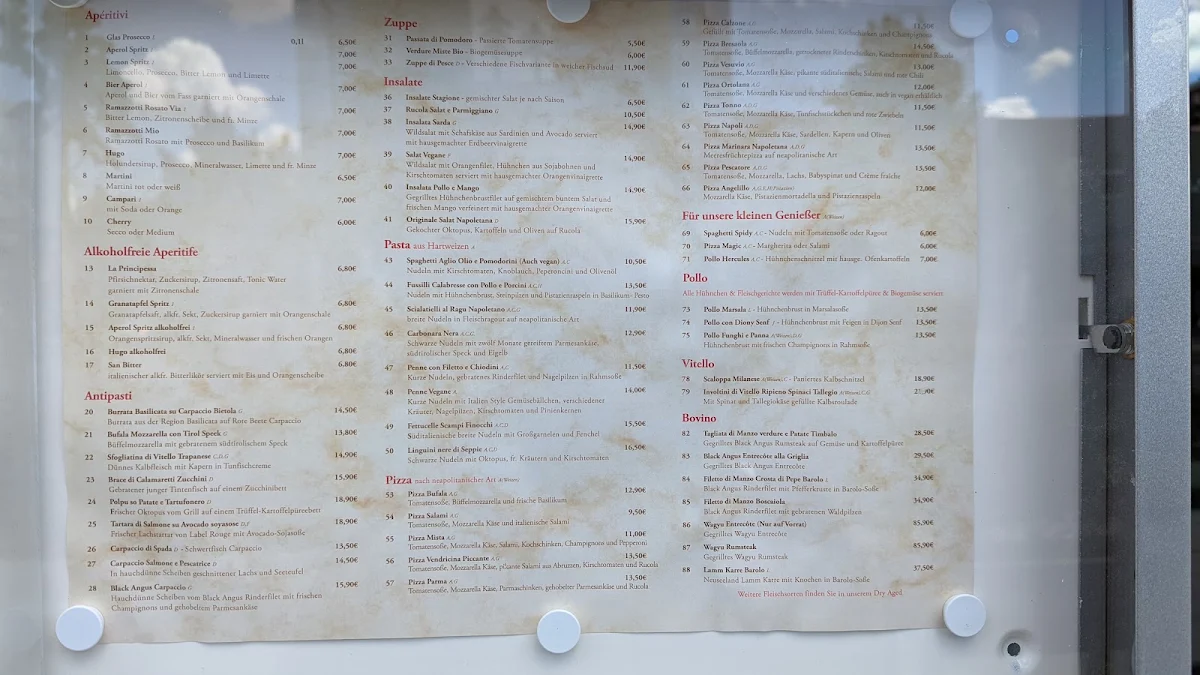 Apéritivi
1 Glas Prosecco J 0,1l 6,50€
2 Aperol Spritz J 7,00€
3 Lemon Spritz J 7,00€
Limoncello, Prosecco, Bitter Lemon und Limette
4 Bier Aperol J 7,00€
Aperol und Bier vom Fass garniert mit Orangenschale
5 Ramazzotti Rosato Via J 7,00€
Bitter Lemon, Zitronenscheibe und fr. Minze
6 Ramazzotti Mio 7,00€
Ramazzotti Rosato mit Prosecco und Basilikum
7 Hugo 7,00€
Holundersirup, Prosecco, Mineralwasser, Limette und fr. Minze
8 Martini 6,50€
Martini rot oder weiß
9 Campari J 7,00€
mit Soda oder Orange
10 Cherry 6,00€
Secco oder Medium
Alkoholfreie Aperitife
13 La Principessa 6,80€
Pfirsichnektar, Zuckersirup, Zitronensaft, Tonic Water
garniert mit Zitronenschale
14 Granatapfel Spritz J 6,80€
Granatapfelsaft, alkfr. Sekt, Zuckersirup garniert mit Orangenschale
15 Aperol Spritz alkoholfrei J 6,80€
Orangenspritzsirup, alkfr. Sekt, Mineralwasser und frischen Orangen
16 Hugo alkoholfrei 6,80€
17 San Bitter 6,80€
italienischer alkfr. Bitterlikör serviert mit Eis und Orangenscheibe
Antipasti
20 Burrata Basilicata su Carpaccio Bietola G 14,50€
Burrata aus der Region Basilicata auf Rote Beete Carpaccio
21 Bufala Mozzarella con Tirol Speck G 13,80€
Büffelmozzarella mit gebratenem südtirolischem Speck
22 Sfogliatina di Vitello Trapanese C,D,G 14,90€
Dünnes Kalbfleisch mit Kapern in Tunfischcreme
23 Brace di Calamaretti Zucchini D 15,90€
Gebratener junger Tintenfisch auf einem Zucchinibett
24 Polpo su Patate e Tartufonero D 18,90€
Frischer Oktopus vom Grill auf einem Trüffel-Kartoffelpüreebett
25 Tartara di Salmone su Avocado soyasose D,F 18,90€
Frischer Lachstartar von Label Rouge mit Avocado-Sojasoße
26 Carpaccio di Spada D - Schwertfisch Carpaccio 13,50€
27 Carpaccio Salmone e Pescatrice D 14,50€
In hauchdünne Scheiben geschnittener Lachs und Seeteufel
28 Black Angus Carpaccio G 15,90€
Hauchdünne Scheiben vom Black Angus Rinderfilet mit frischen
Champignons und gehobeltem Parmesankäse
Zuppe
31 Passata di Pomodoro - Passierte Tomatensuppe 5,50€
32 Verdure Miste Bio - Biogemüsesuppe 6,00€
33 Zuppe di Pesce D - Verschiedene Fischvariante in weicher Fischsud 11,90€
Insalate
36 Insalate Stagione - gemischter Salat je nach Saison 6,50€
37 Rucola Salat e Parmiggiano G 10,50€
38 Insalata Sarda G 14,90€
Wildsalat mit Schafskäse aus Sardinien und Avocado serviert
mit hausgemachter Erdbeervinaigrette
39 Salat Vegane F 14,90€
Wildsalat mit Orangenfilet, Hühnchen aus Soisbohnen und
Kirschtomaten serviert mit hausgemachter Orangenvinaigrette
40 Insalata Pollo e Mango 14,90€
Gegrilltes Hühnchenbrustfilet auf gemischtem buntem Salat und
frischen Mango verfeinert mit hausgemachter Orangenvinaigrette
41 Originale Salat Napoletana D 15,90€
Gekochter Oktopus, Kartoffeln und Oliven auf Rucola
Pasta aus Hartweizen A
43 Spaghetti Aglio Olio e Pomodorini (Auch vegan) A,C 10,50€
Nudeln mit Kirschtomaten, Knoblauch, Peperoncini und Olivenöl
44 Fussilli Calabresse con Pollo e Porcini A,C,H 13,50€
Nudeln mit Hühnchenbrust, Steinpilzen und Pistazienraspeln in Basilikum- Pesto
45 Scialatielli al Ragu Napoletano A,C,G 11,90€
breite Nudeln in Fleischragout auf neapolitanische Art
46 Carbonara Nera A,C,G 12,90€
Schwarze Nudeln mit zwölf Monate gereiftem Parmesankäse,
südtirolischer Speck und Eigelb
47 Penne con Filetto e Chiodini A,C 11,50€
Kurze Nudeln, gebratenes Rinderfilet und Nagelpilzen in Rahmsoße
48 Penne Vegane A 14,00€
Kurze Nudeln mit Italien Style Gemüsebällchen, verschiedener
Kräuter, Nagelpilzen, Kirschtomaten und Pinienkernen
49 Fettucelle Scampi Finocchi A,C,D 15,50€
Südtitalienische breite Nudeln mit Großgarnelen und Fenchel
50 Linguini nere di Seppie A,C,D 16,50€
Schwarze Nudeln mit Oktopus, fr. Kräutern und Kirschtomaten
Pizza nach neapolitanischer Art
53 Pizza Bufala A,G 12,90€
Tomatensoße, Büffelmozzarella und frische Basilikum
54 Pizza Salami A,G 9,50€
Tomatensoße, Mozzarella Käse und italienische Salami
55 Pizza Mista A,G 11,00€
Tomatensoße, Mozzarella Käse, Salami, Kochschinken, Champignon und Pepperoni
56 Pizza Vendricina Piccante A,G 13,50€
Tomatensoße, Mozzarella Käse, pikante Salami aus Abruzzen, Kirschtomaten und Rucola
57 Pizza Parma A,G 13,50€
Tomatensoße, Mozzarella Käse, Parmaschinken, gehobelter Parmesankäse und Rucola
58 Pizza Calzone A,G 11,50€
Gefüllt mit Tomatensoße, Mozzarella, Salami, Kochschinken und Champignons
59 Pizza Bresaola A,G 14,50€
Tomatensoße, Büffelmozzarella, getrockneter Rinderschinken, Kirschtomaten und Rucola
60 Pizza Vesuvio A,G 13,00€
Tomatensoße, Mozzarella Käse, pikante süditalienische Salami und rote Chili
61 Pizza Ortolana A,G 12,00€
Tomatensoße, Mozzarella Käse und verschiedenes Gemüse, auch in vegan erhältlich
62 Pizza Tonno A,D,G 11,50€
Tomatensoße, Mozzarella Käse, Tunfischstückchen und rote Zwiebeln
63 Pizza Napoli A,D,G 11,50€
Tomatensoße, Mozzarella Käse, Sardellen, Kapern und Oliven
64 Pizza Marinara Napoletana A,D,G 13,50€
Meeresfrüchtepizza auf neapolitanische Art
65 Pizza Pescatore A,D,G 13,50€
Tomatensoße, Mozzarella, Lachs, Babyspinat und Crème fraîche
66 Pizza Angelillo A,G,8,H(Pistazien) 12,00€
Mozzarella Käse, Pistazienmortadella und Pistazienraspeln
Für unsere kleinen Genießer A(Weizen)
69 Spaghetti Spidy A,C - Nudeln mit Tomatensoße oder Ragout 6,00€
70 Pizza Magic A,C - Margherita oder Salami 6,00€
71 Pollo Hercules A,C - Hühnchenschnitzel mit hausge. Ofenkartoffeln 7,00€
Pollo
Alle Hühnchen & Fleischgerichte werden mit Trüffel-Kartoffelpüree & Biogemüse serviert
73 Pollo Marsala J - Hühnchenbrust in Marsalasoße 13,50€
74 Pollo con Diony Senf J - Hühnchenbrust mit Feigen in Dijon Senf 13,50€
75 Pollo Funghi e Panna A(Weizen),G 13,50€
Hühnchenbrust mit frischen Champignons in Rahmsoße
Vitello
78 Scaloppa Milanese A(Weizen) C - Paniertes Kalbschnitzel 18,90€
79 Involtini di Vitello Ripieno Spinaci Tallegio A(Weizen),C,G
Mit Spinat und Tallegiokäse gefüllte Kalbsroulade
Bovino
82 Tagliata di Manzo verdure e Patate Timbalo 28,50€
Gegrilltes Black Angus Rumsteak auf Gemüse und Kartoffelpüree
83 Black Angus Entrecôte alla Griglia 29,50€
Gegrilltes Black Angus Entrecôte
84 Filetto di Manzo Crosta di Pepe Barolo J 34,90€
Black Angus Rinderfilet mit Pfefferkruste in Barolo-Soße
85 Filetto di Manzo Boscaiola 34,90€
Black Angus Rinderfilet mit gebratenen Waldpilzen
86 Wagyu Entrecôte (Nur auf Vorrat) 85,90€
Gegrilltes Wagyu Entrecôte
87 Wagyu Rumsteak 85,90€
Gegrilltes Wagyu Rumsteak
88 Lamm Karre Barolo J 37,50€
Neuseeland Lamm Karre mit Knochen in Barolo-Soße
Weitere Fleischsorten finden Sie in unserem Dry Aged